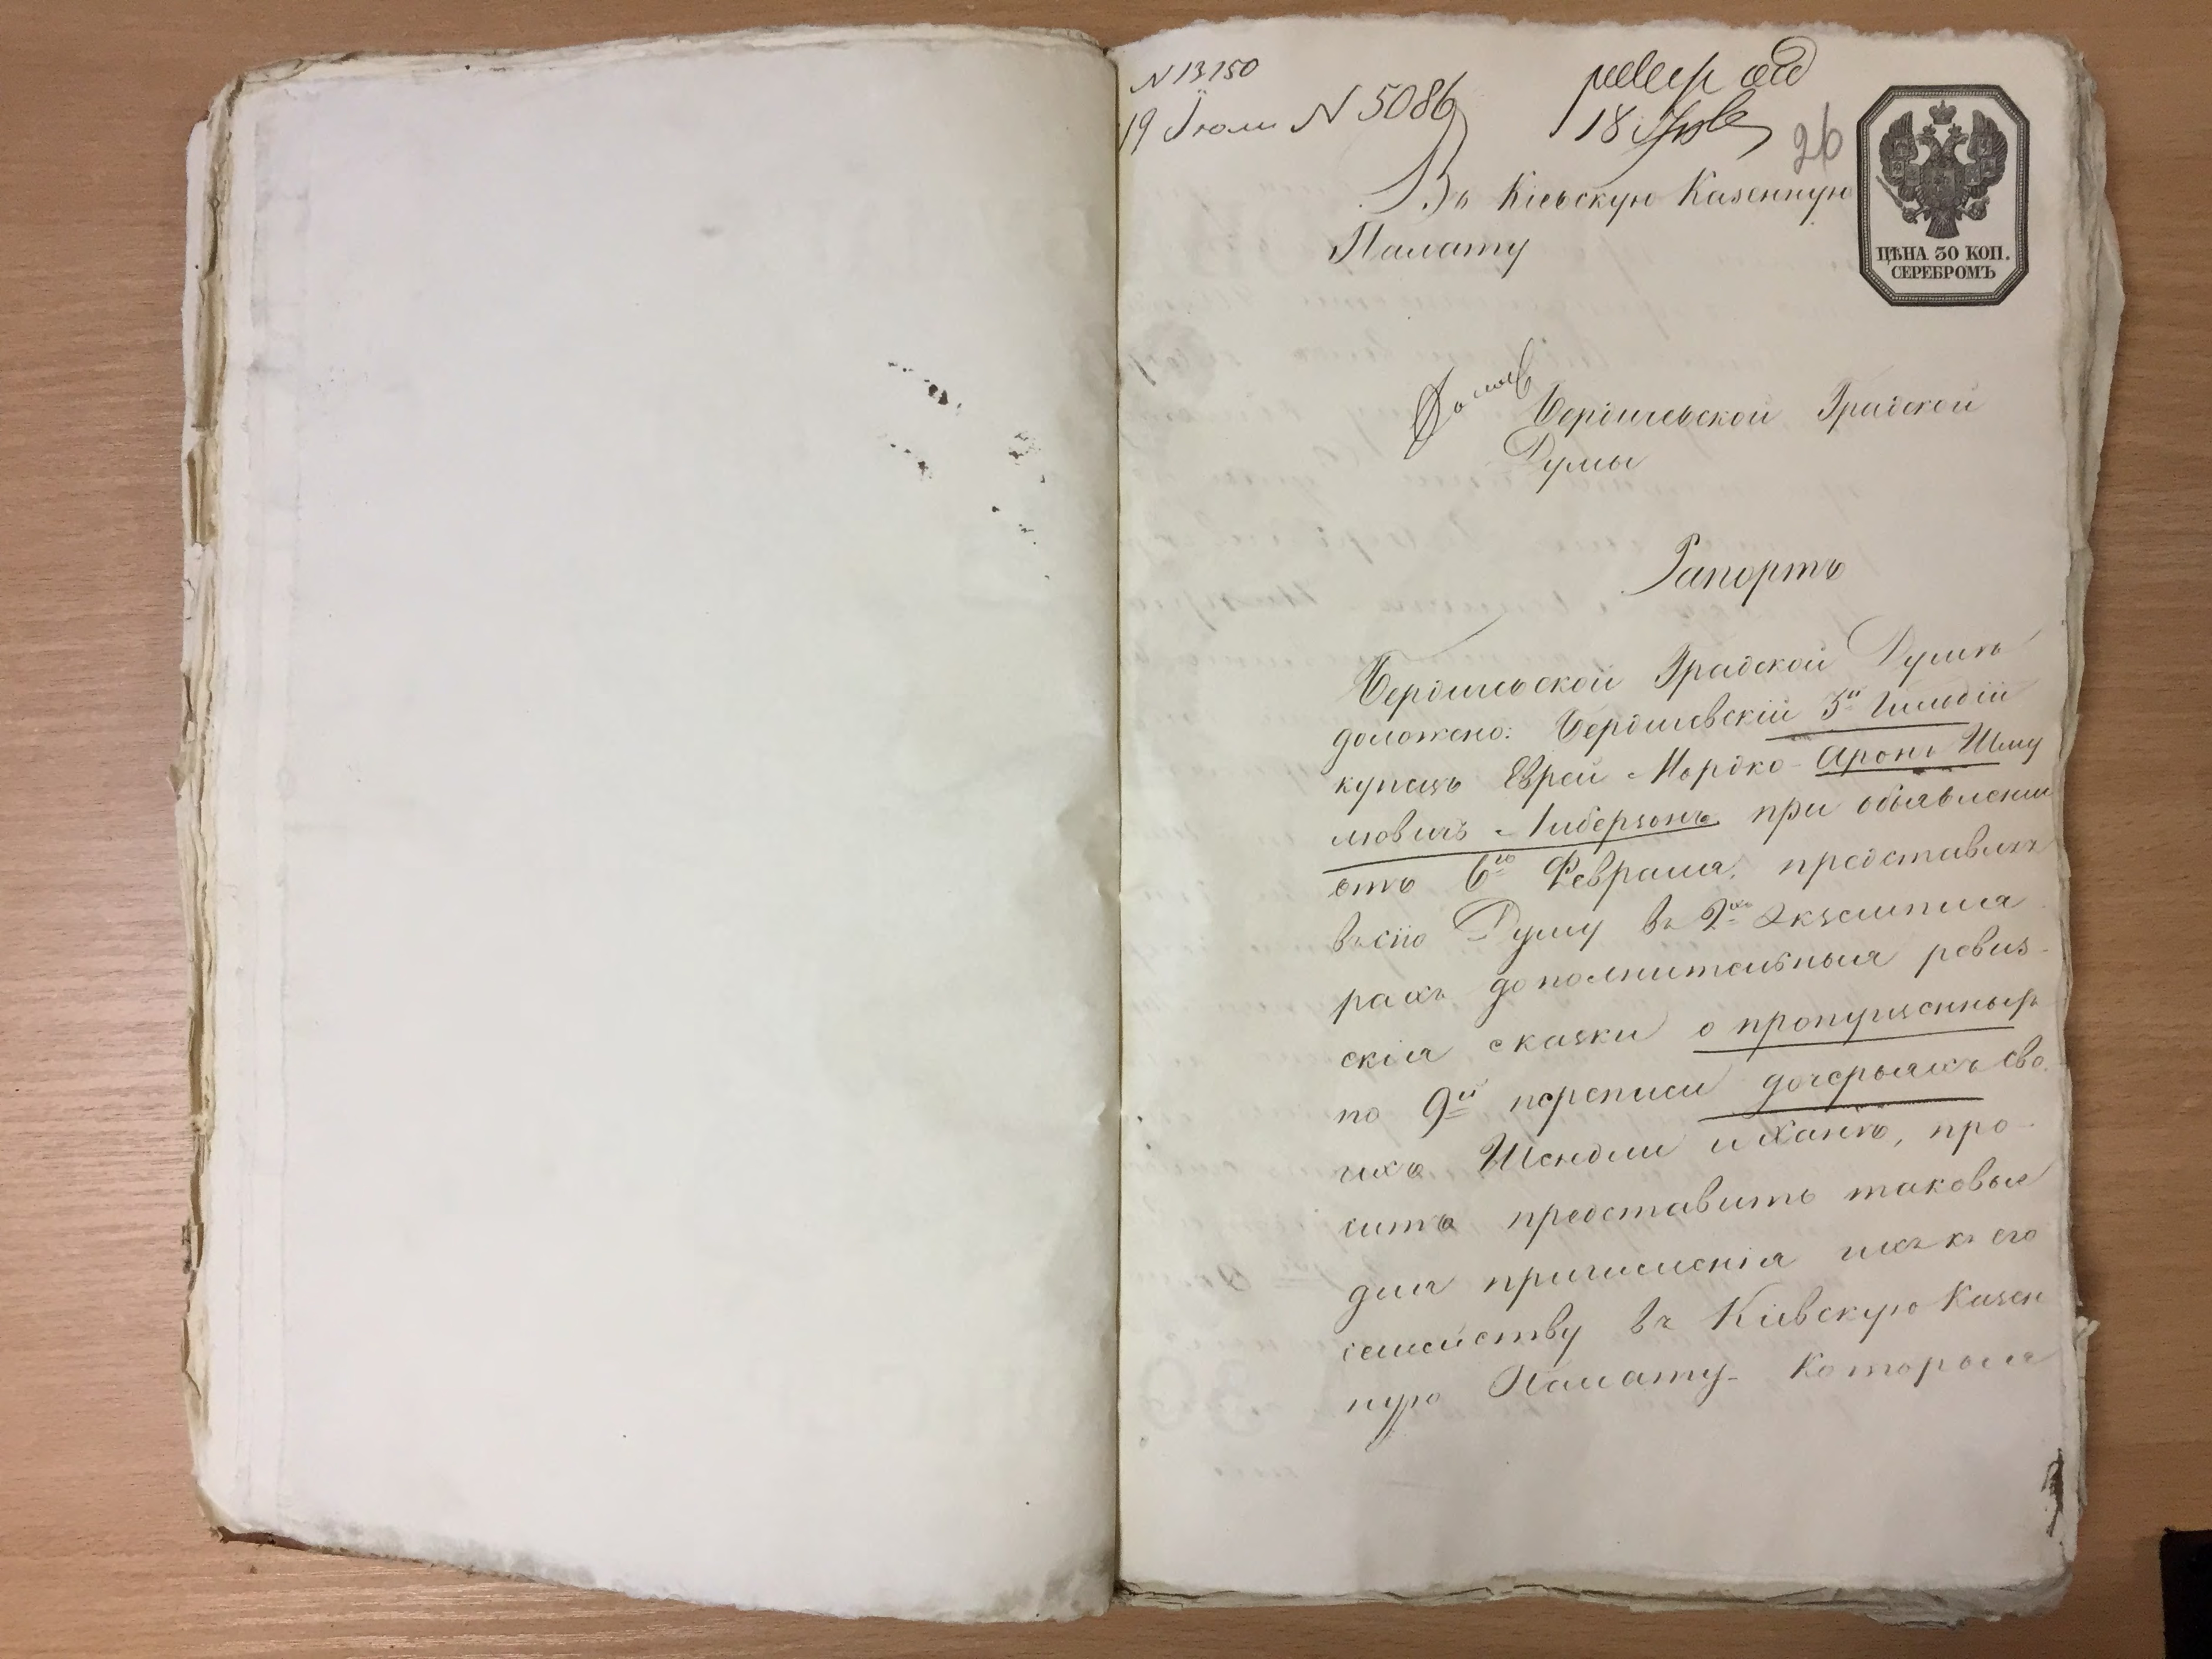 N 13150
19 Іюля N 5086
18
26
Въ Кіевскую Казенную
Палату
ЦѢНА 30 КОП.
СЕРЕБРОМЪ
Бердичевской Градской
Думы
Рапортъ
Бердичевской Градской Думѣ
доложено: Бердичевскій 3й Гильдіи
купецъ Еврей Мордко-Аронъ Шму
лювичъ Либерзонъ при объявленіи
отъ 6го Февраля, представилъ
въ сію Думу въ 2хъ Экземпля
рахъ дополнительныя ревиз-
скія сказки о пропущенныхъ
по 9й переписи дочерьяхъ сво
ихъ Шендли и Ханѣ, про-
ситъ представить таковые
для причисленія ихъ къ его
семейству въ Кіевскую Казен
ную Палату. Которыя